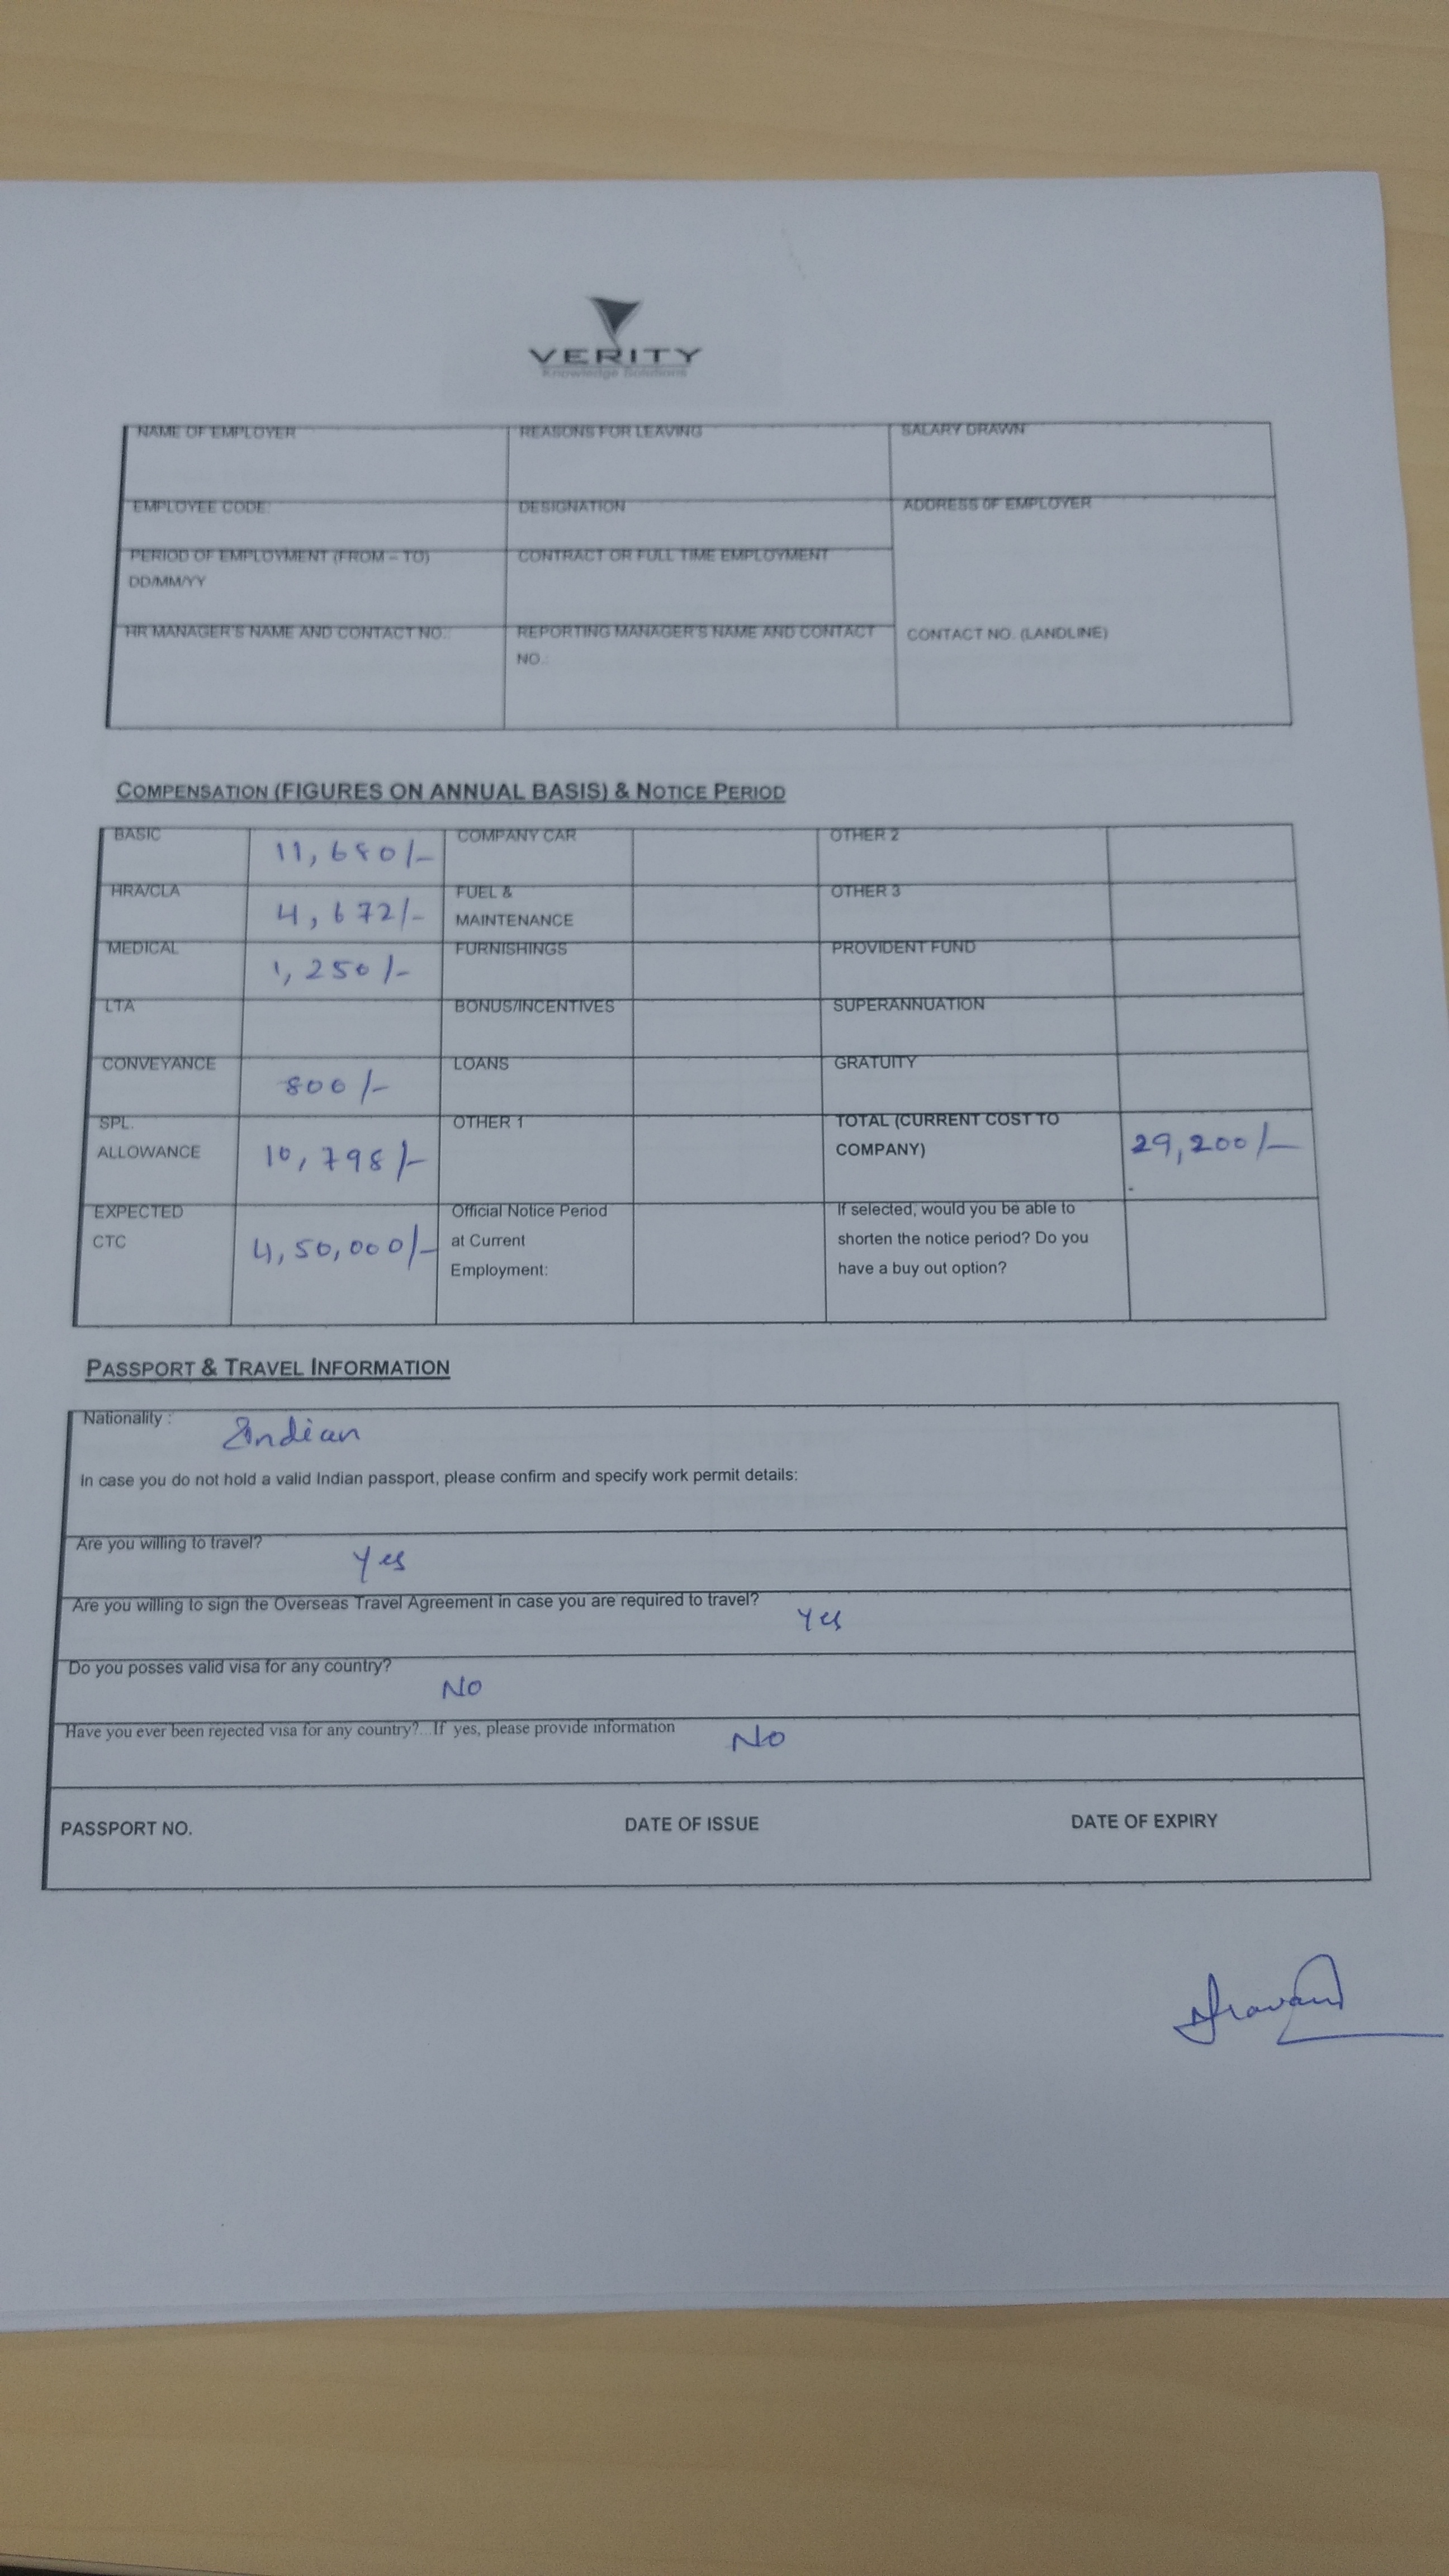 VERITY
Knowledge Solutions
NAME OF EMPLOYER REASONS FOR LEAVING SALARY DRAWN
EMPLOYEE CODE: DESIGNATION ADDRESS OF EMPLOYER
PERIOD OF EMPLOYMENT (FROM – TO) CONTRACT OR FULL TIME EMPLOYMENT
DD/MM/YY
HR MANAGER'S NAME AND CONTACT NO.: REPORTING MANAGER'S NAME AND CONTACT CONTACT NO. (LANDLINE)
NO.:
COMPENSATION (FIGURES ON ANNUAL BASIS) & NOTICE PERIOD
BASIC 11,680/- COMPANY CAR OTHER 2
HRA/CLA 4,672/- FUEL & OTHER 3
MAINTENANCE
MEDICAL 1,250/- FURNISHINGS PROVIDENT FUND
LTA BONUS/INCENTIVES SUPERANNUATION
CONVEYANCE 800/- LOANS GRATUITY
SPL. OTHER 1 TOTAL (CURRENT COST TO
ALLOWANCE 10,798/- COMPANY) 29,200/-
EXPECTED Official Notice Period If selected, would you be able to
CTC 4,50,000/- at Current shorten the notice period? Do you
Employment: have a buy out option?
PASSPORT & TRAVEL INFORMATION
Nationality : Indian
In case you do not hold a valid Indian passport, please confirm and specify work permit details:
Are you willing to travel? Yes
Are you willing to sign the Overseas Travel Agreement in case you are required to travel? Yes
Do you posses valid visa for any country? No
Have you ever been rejected visa for any country?...If yes, please provide information No
PASSPORT NO. DATE OF ISSUE DATE OF EXPIRY